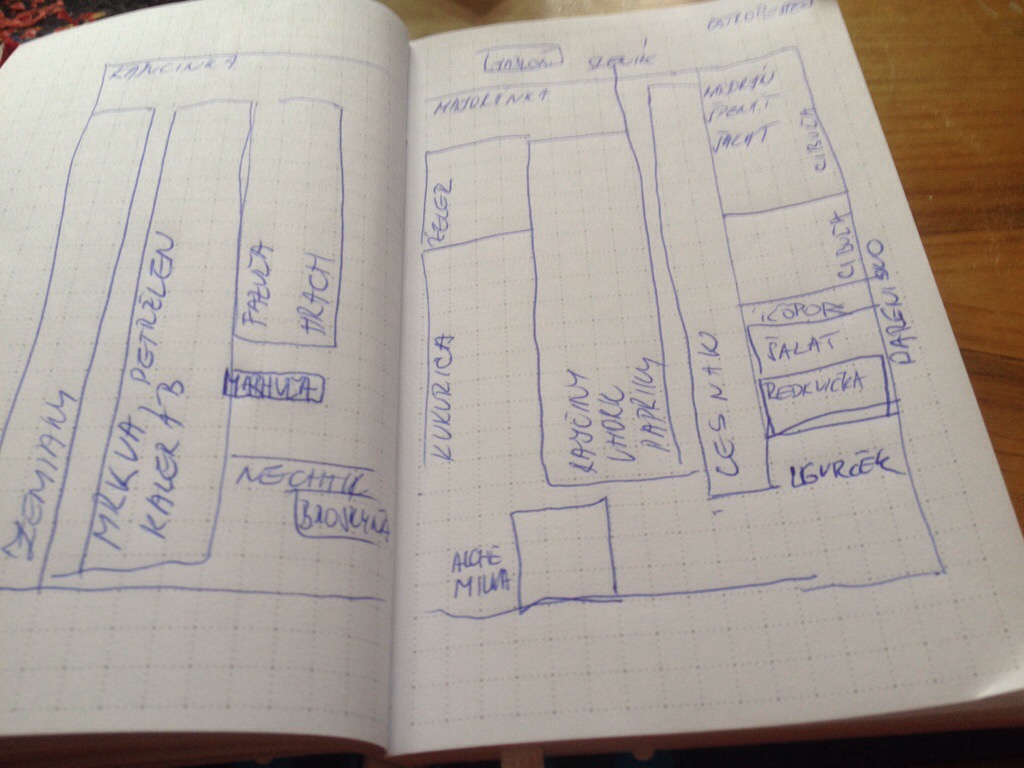 KAPUCINKA
ZEMIAKY
MRKVA PETRŽLEN
KALERÁB
FAZUĽA
HRACH
MARHUĽA
NECHTÍK
BROSKYŇA
JABLOŇ
SLEPIČÍK
MAJORÁNKA
ZELER
KUKURICA
RAJČINY
UHORK
PAPRIKY
CESNAK
ŠPENÁT
ŠALÁT
CIBUĽA
CIBUĽA
KÔPOR
ŠALÁT
REĎKVIČKA
PARENISKO
UGURČEK
ALCHE
MILKA